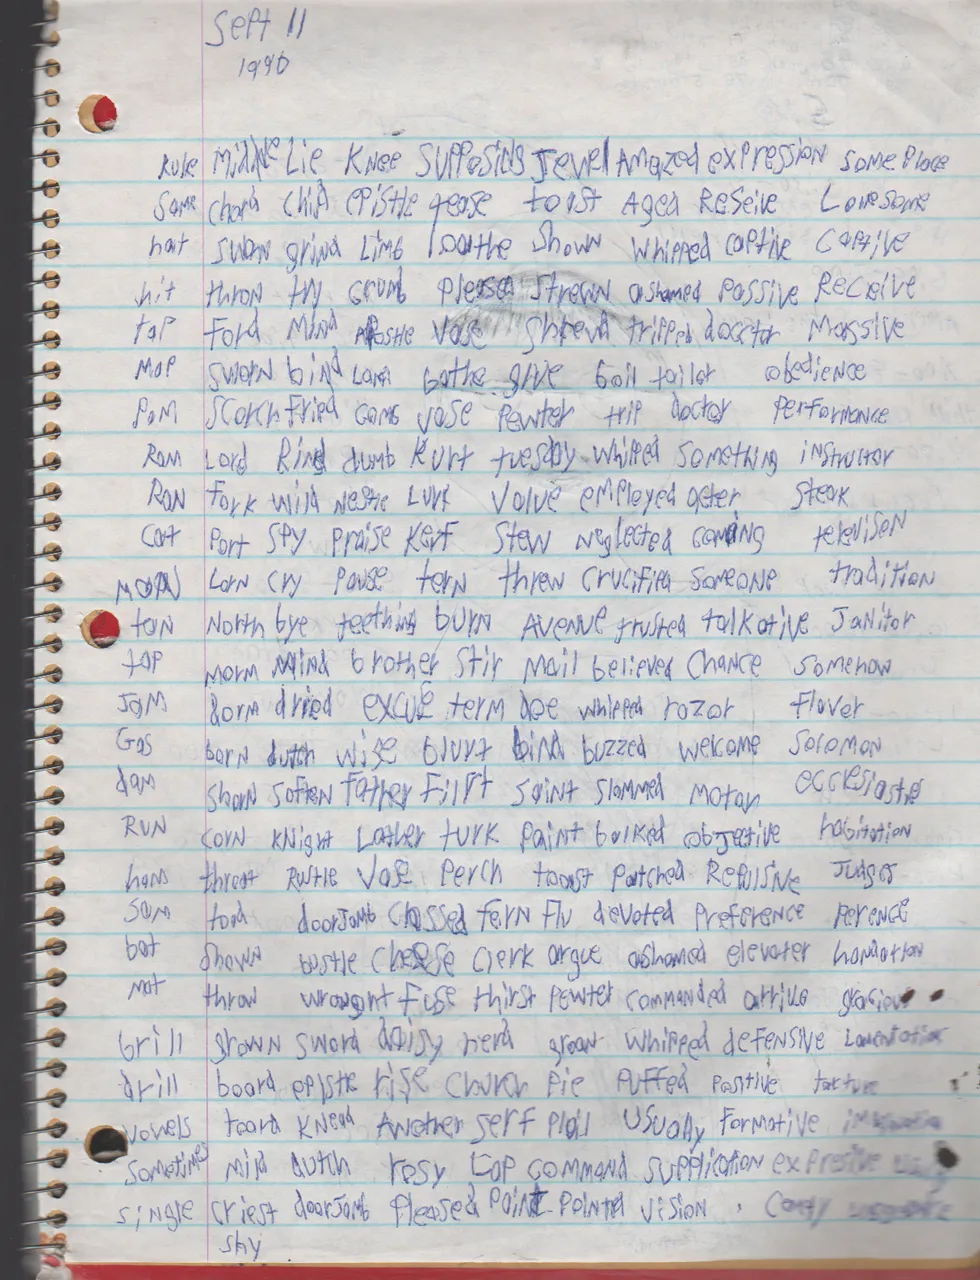 Sept 11
1990
Rule Middle Lie Knee Supposing Jewel Amazed expression some Place
Same chord Child epistle tease toast Aged Reseive Lonesome
hat sworn grind Limb loathe Shown whipped captive Captive
hit thron try crumb Please Strewn ashamed Passive Receive
tap Ford Mind Apostle Vase Shrewd tripped docctor Massive
Map sworn bind Lamb bathe give boil tailor obedience
Pam Scorch Fried comb vase Pewter trip doctor Performance
Ram Lord Rind dumb Kurt tuesday whipped Something instructor
Ran Fork wild nestle Lurk Value employed acter Steak
Cat Port Spy Praise Kerf Stew neglected coming televison
moon Lorn cry Pause tern threw crucified Someone tradition
tan North bye teething burn Avenue trusted talkative Janitor
tap morm Mind brother Stir Mail believed Chance Somehow
Jam dorm dried excue term doe whipped rozor Flaver
Gas born dutch wise blurt bind buzzed welcome Solomon
dam Shorn Soften Father Flirt Saint Slammed Motor
Run corn Knight Lather turk Paint balked objective habitation
hams threat Rustle Vase Perch toast Patched Repulsive Judges
Sam toad doorJamb Classed fern Flu devoted Preference Perence
bat Shown bustle Cheese Clerk argue ashamed elevater
mat throw wrought Fuse thirst Pewter commanded arrive
brill grown Sword daisy herd groan whipped defensive Lamentation
drill board epistle rise Church Pie Puffed Positive
vowels toard Knead Another Serf Plail Usually Formative
Sometimes mild dutch rosy Cop command Supplication expresive
Single criest doorJamb Pleased Paint Pointed vision
shy